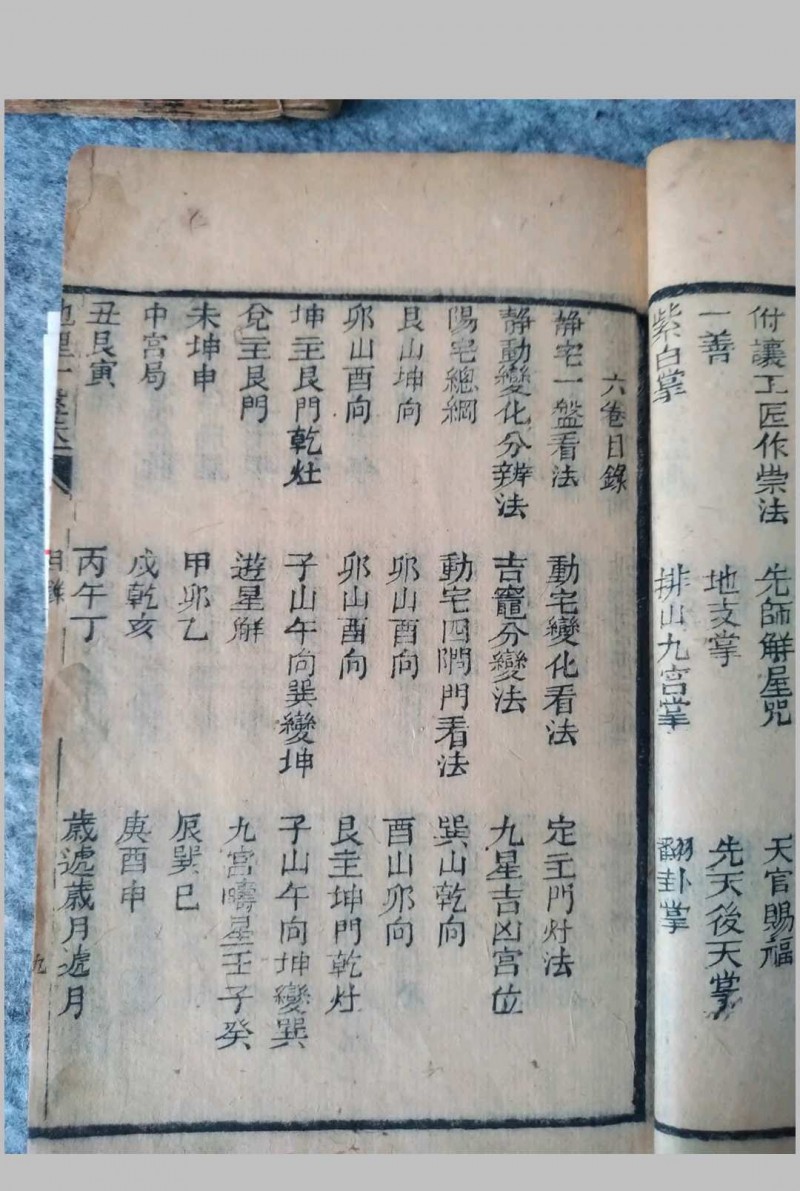 附讓工匠作祟法 先師解星咒 天官賜福
一善 地支掌 先天後天掌
紫白掌 排山九宮掌 翻卦掌
六卷目錄
静宅一盤看法 動宅變化看法 定主門灶法
静動變化分辨法 吉竈分變法 九星吉凶宮位
陽宅總綱 動宅四隅門看法 巽山乾向
艮山坤向 卯山酉向 酉山卯向
卯山酉向 卯山酉向 艮主坤門乾灶
坤主艮門乾灶 子山午向巽變坤 子山午向坤變巽
兌主艮門 遊星解 九宮疇星壬子癸
未坤申 甲卯乙 辰巽巳
中宮局 戌乾亥 庚酉申
丑艮寅 丙午丁 歲遞歲月遞月
目錄
九